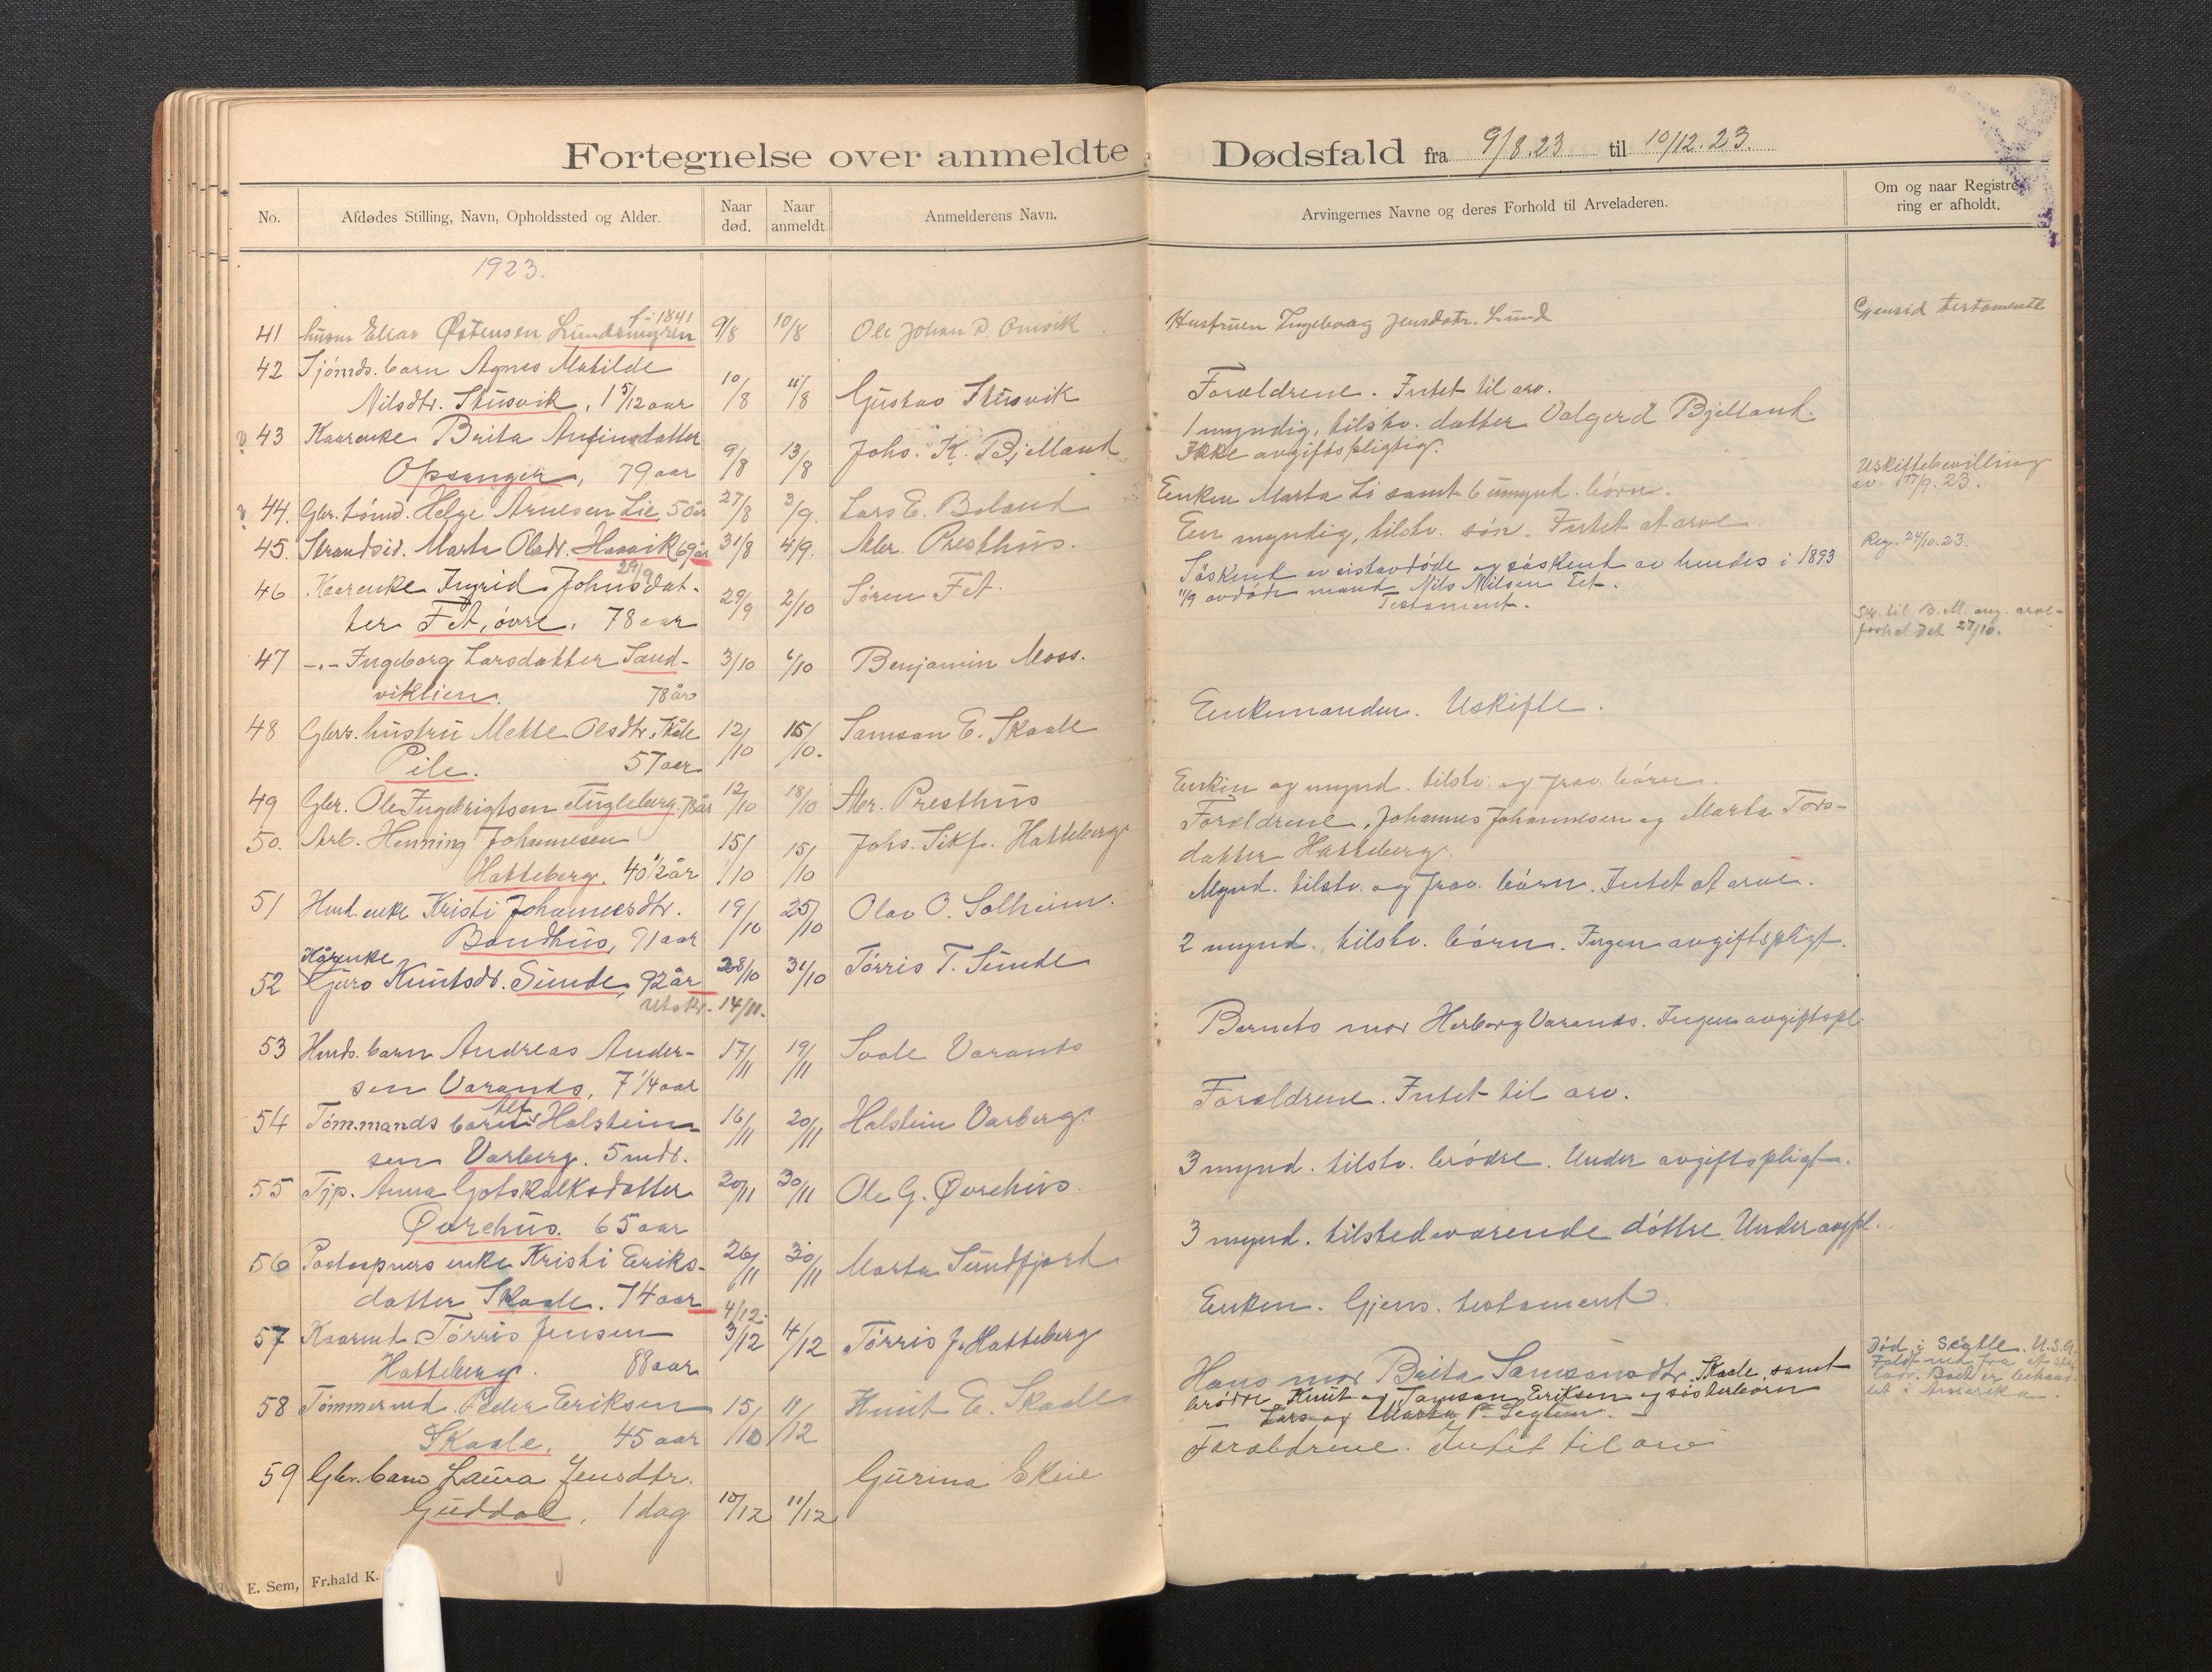 Fortegnelse over anmeldte Dødsfald fra 9/8.23 til 10/12.23.
No.
Afdødes Stilling, Navn, Opholdssted og Alder.
Naar død.
Naar anmeldt
Anmelderens Navn.
Arvingernes Navne og deres Forhold til Arveladeren.
Om og naar Registrering er afholdt.
1923.
f. 1841
41 husm Elias Østensen Lundsmyren 9/8 10/8 Ole Johan Omvik
Hustruen Ingeborg Jensdatr. Lund
Gjensid testamente
42 Sjømds. barn Agnes Matilde
Nilsdtr. Skusvik, 1 5/12 aar 10/8 11/8 Gustav Skusvik
Forældrene. Intet til arv.
43 Kaarenke Brita Anfinsdatter
Opsanger, 79 aar 9/8 13/8 Johs. K. Bjelland
1 myndig, tilstv. datter Valgerd Bjelland.
Ikke avgiftspligtig.
44. Gbr. tømd. Helge Arnesen Lie 50 år 27/8 3/9. Lars E. Boland
Enken Marta Li samt 6 umynd. börn.
Uskiftebevilling
av 17/9.23.
45. Strandsid. Marta Olsdr. Husvik 69 år 31/8 4/9. Mer. Presthus.
En myndig, tilstv. søn. Intet at arve.
Reg. 24/10.23.
29/9
46 Kaarenke Ingrid Johnsdat-
ter Fet, øvre, 78 aar 29/9 2/10 Søren Fet.
Søskend av sistavdøde og søskend av hendes i 1893
11/9 avdøde mand Nils Nilsen Fet.
Testament.
Skr. til B.M. ang. arve-
forhaldet 27/10.
47 -"- Ingeborg Larsdatter Sand-
viklien. 78 år 3/10 6/10 Benjamin Moss.
48 Gbrs. hustru Mette Olsdtr. Skåle
Pile. 57 aar 12/10 15/10. Samson E. Skaale
Enkemanden. Uskifte.
49 Gbr. Ole Ingebrigtsen Eugleberg. 78 år 12/10 18/10 Mer. Presthus
Enken og mynd. tilstv. og frav. børn.
50. Arb. Henning Johannesen
Hatteberg. 40 1/2 år 15/10 15/10 Johs. Sikf. Hatteberg
Forældrene, Johannes Johannesen og Marta Tors-
datter Hatteberg.
51 Husd. enke Kristi Johannesdtr.
Bondhus, 91 aar 19/10 25/10 Olav O. Solheim.
Mynd. tilstv. og frav. børn. Intet at arve.
Kårenke
52 Guro Knutsdt. Sunde, 92 år 28/10 31/10 Tørris T. Sunde
Utskr. 14/11.
2 mynd. tilstv. børn. Ingen avgiftspligt.
53 Husds. barn Andreas Ander-
sen Varands, 7 1/4 aar 17/11 19/11 Soale Varands
Barnets mor Herborg Varands. Ingen avgiftspl.
54 Tømmands barn Alf Holstein-
sen Varberg. 5 mdr. 16/11 20/11 Halstein Varberg
Forældrene. Intet til arv.
55 Tjp. Anna Gotskalksdatter
Øvrehus. 65 aar 20/11 30/11 Ole G. Øvrehus.
3 mynd. tilstv. brødre. Under avgiftspligt.
56 Postaapners enke Kristi Eriks-
datter Skaale. 74 aar 26/11 30/11 Marta Sundfjord
3 mynd. tilstedværende døttre. Under avgpl.
4/12.
57 Kaarmd. Tørris Jensen
Hatteberg. 88 aar 3/12 4/12 Tørris J. Hatteberg
Enken. Gjens. testament.
58 Tømmermd. Peder Eriksen
Skaale, 45 aar 15/10 11/12 Knut E. Skaale
Hans mor Brita Samsonsdtr. Skaale samt
brödre Knut og Samson Eriksen og søsterbørn
Lars og Marta P. Seglem.
Død i Seattle. U.S.A.
Faldt ned fra et sti-
lads. Boet er behand-
let i Amerika.
59 Gbr. barn Laura Jensdtr.
Guddal, 1 dag 10/12 11/12 Gurina Skeie
Forældrene. Intet til arv.
E. Sem, Fr.hald K.